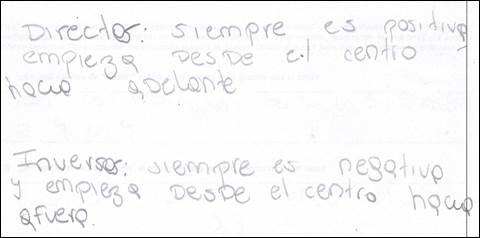 Directos: siempre es positiva
empieza desde el centro
hacia adelante
Inversos: siempre es negativa
y empieza desde el centro hacia
afuera.